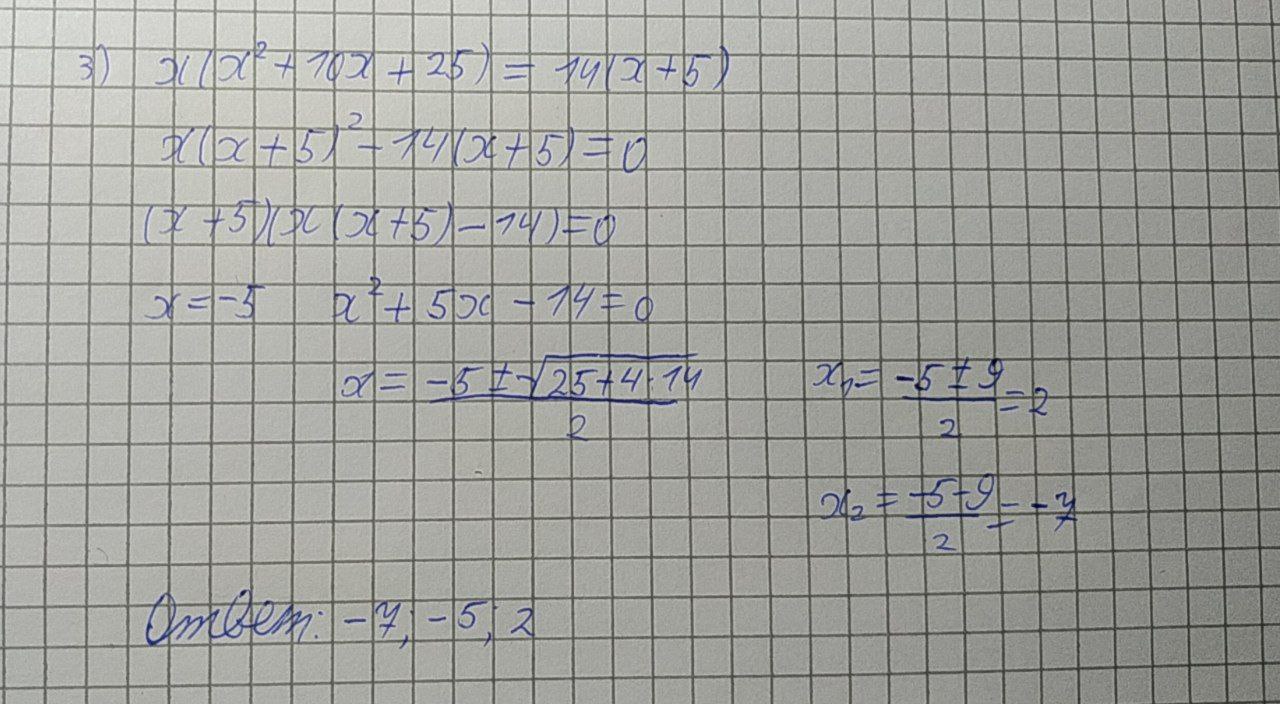 3) x(x² + 10x + 25) = 14(x + 5)
x(x + 5)² - 14(x + 5) = 0
(x + 5)(x(x + 5) - 14) = 0
x = -5 x² + 5x - 14 = 0
x = (-5 ± √(25 + 4·14))/2 x₁ = (-5 ± 9)/2 = 2
x₂ = (-5 - 9)/2 = -7
Ответ: -7; -5; 2